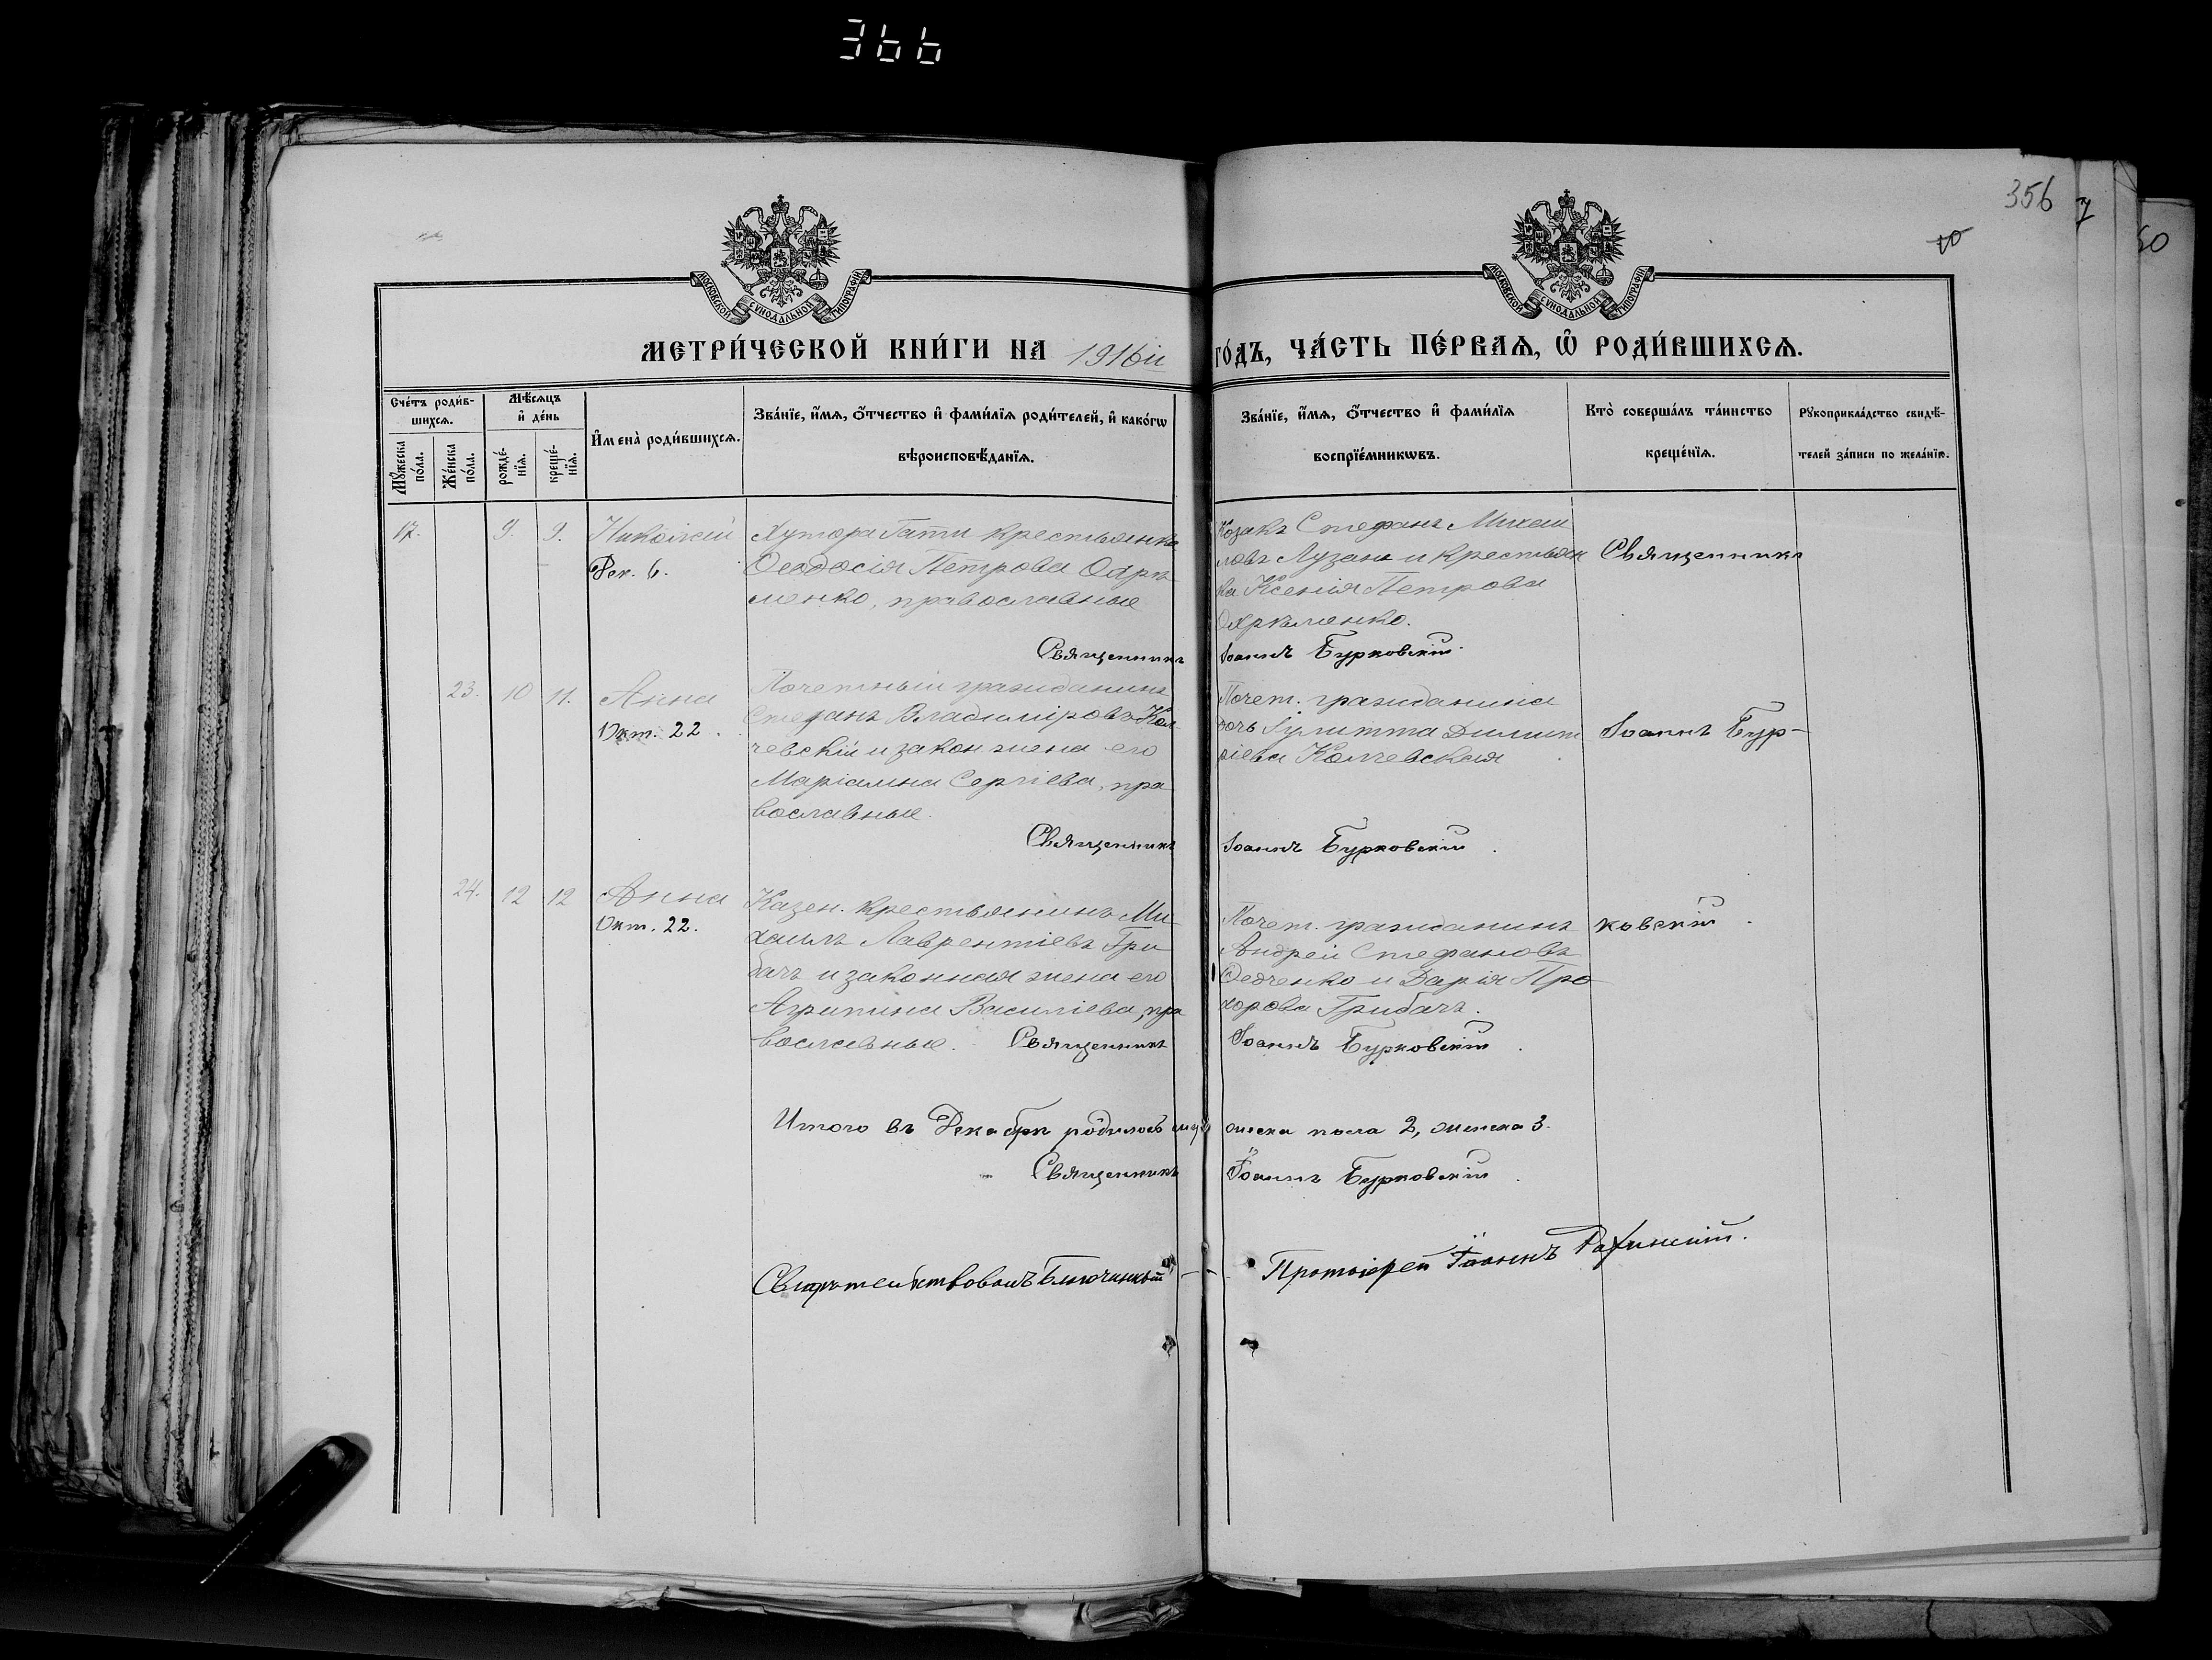 366
356
10
7
50
МОСКОВСКОЙ СѴНОДАЛЬНОЙ ТИПОГРАФІИ
МОСКОВСКОЙ СѴНОДАЛЬНОЙ ТИПОГРАФІИ
МЕТРИ́ЧЕСКОЙ КНИ́ГИ НА 1916й ГО́ДЪ, ЧА́СТЬ ПЕ́РВАѦ, Ѡ҆ РОДИ́ВШИХСѦ.
Сче́тъ роди́в-
шихсѧ.
Мѣ́сѧцъ
и҆ де́нь
Мꙋ́жеска
по́ла.
Же́нска
по́ла.
рожде́-
нїѧ.
креще́-
нїѧ.
И҆мена̀ роди́вшихсѧ.
Зва́нїе, и҆́мѧ, ѻ҆́тчество и҆ фами́лїѧ роди́телей, и҆ како́гѡ
вѣроисповѣ́данїѧ.
Зва́нїе, и҆́мѧ, ѻ҆́тчество и҆ фами́лїѧ
воспрїе́мникѡвъ.
Кто̀ соверша́лъ та́инство
креще́нїѧ.
Рꙋкоприкла́дство свидѣ́-
телей за́писи по жела́нїю.
17. 9. 9. Николай
Дек. 6.
Хутора Гати крестьянка
Ѳеодосія Петрова
менко, православные
Священникъ
Козакъ Стефанъ Михаи
ловъ Лузанъ и крестьян
ка Ксенія Петрова
Іоаннъ Бурковскій
Священникъ
23. 10 11. Анна
Окт. 22.
Почетный гражданинъ
Стефанъ Владиміровъ Кол
чевскій и закон жена его
Маріамна Сергіева, пра
вославные.
Священникъ
Почет. гражданина
дочь Іулитта Димит
ріева Колчевская
Іоаннъ Бурковскій
Іоаннъ Бур-
24. 12 12 Анна
Окт. 22.
Казен. крестьянинъ Ми
хаилъ Лаврентіевъ Гри
бачъ и законная жена его
Агрипина Василіева, пра
вославные. Священникъ
Почет. гражданинъ
Андрей Стефановъ
Федченко и Дарія Про
хорова Грибачъ.
Іоаннъ Бурковскій
ковскій
Итого въ Декабрѣ родилось муж
жеска пола 2, женска 3.
Священникъ Іоаннъ Бурковскій
Протоіерей Іоаннъ